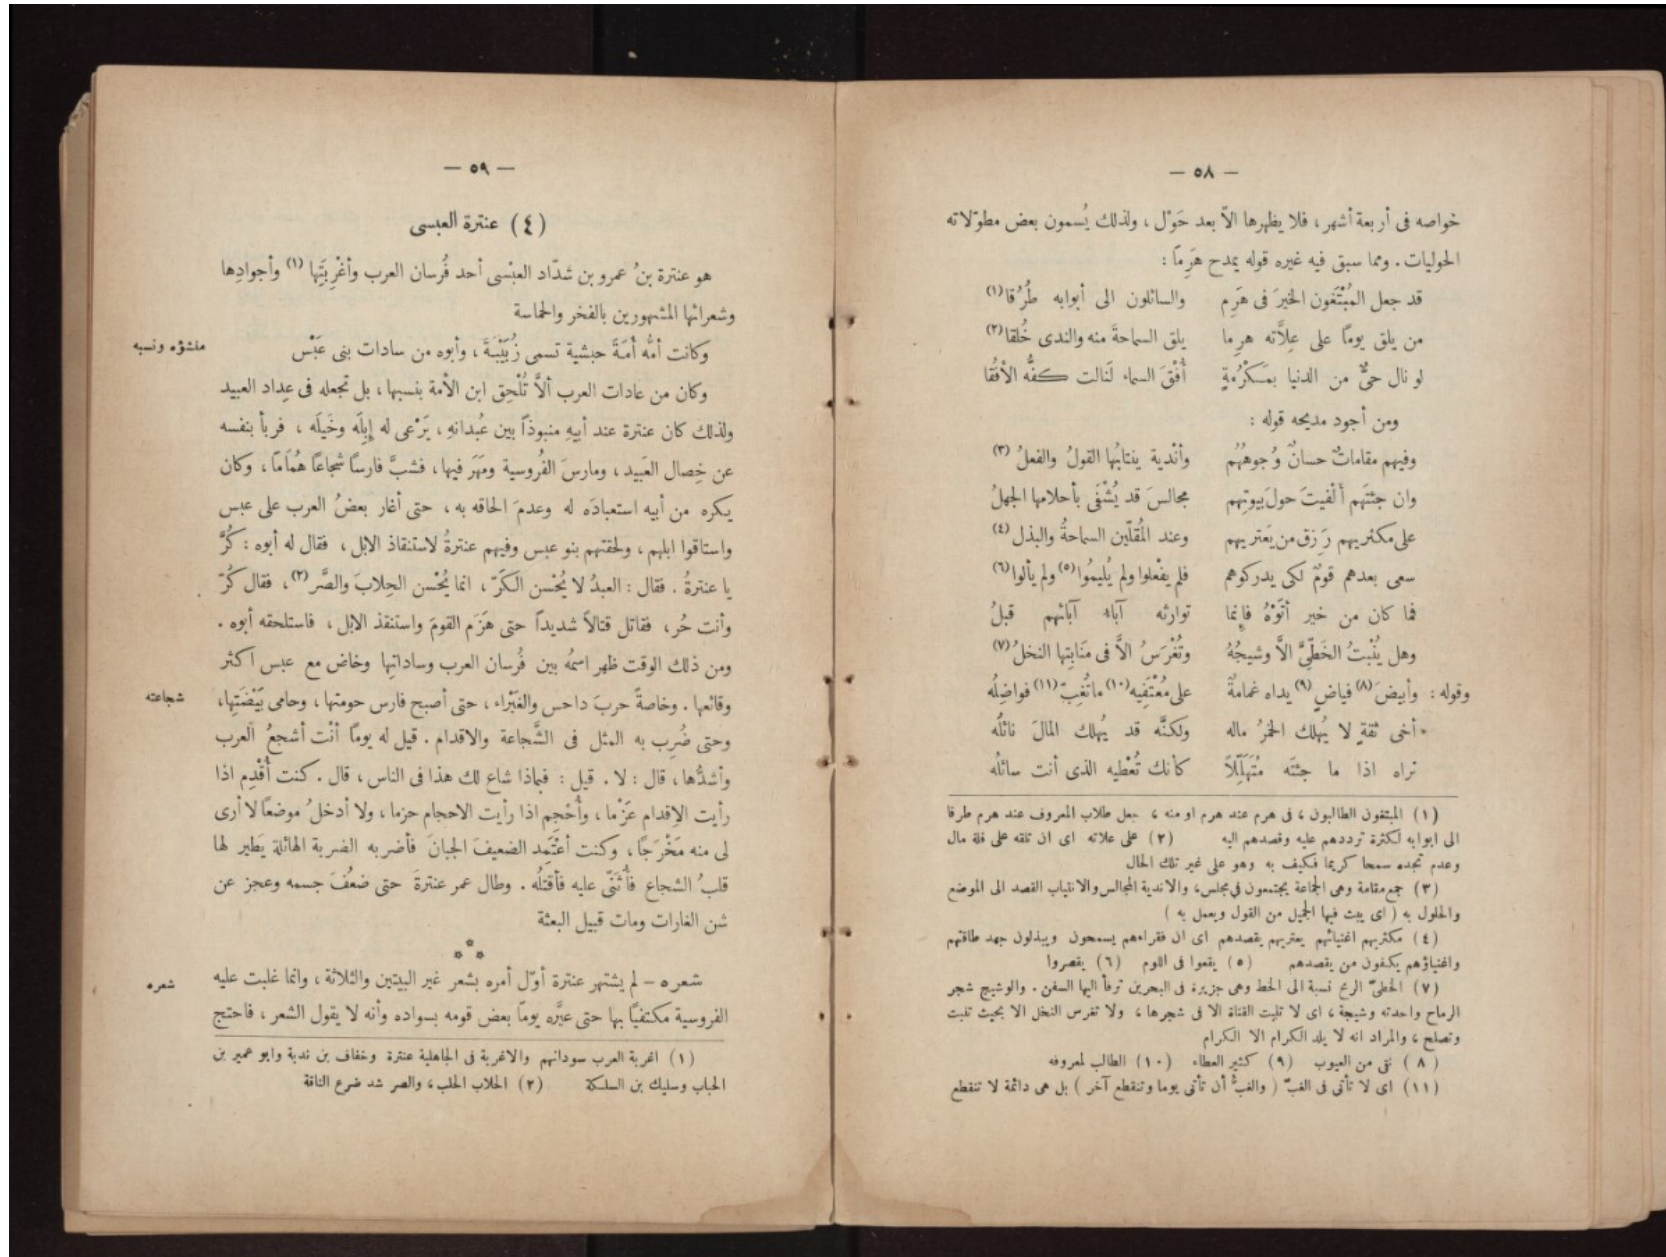 — ٥٨ —
خواصه فى أربعة أشهر ، فلا يظهرها الاّ بعد حَوْل ، ولذلك يُسمون بعض مطوّلاته
الحوليات . ومما سبق فيه غيره قوله يمدح هَرِمًا :
قد جعل المُبْتَغون الخيرَ فى هَرِم والسائلون الى أبوابه طُرُقا (١)
من يلق يومًا على عِلاَّته هرِما يلق السماحةَ منه والندى خُلقا (٢)
لو نال حىٌّ من الدنيا بمَكْرُمةٍ أُفْقَ السماء لَنالت كفُّه الأفُقا
ومن أجود مديحه قوله :
وفيهم مقاماتٌ حسانٌ وُجوهُهُم وأنْدية ينتابُها القولُ والفعلُ (٣)
وان جئتَهم ألْفيتَ حولَ بيوتِهم مجالسَ قد يُشْفَى بأحلامها الجهلُ
على مكثريهم رَِزق من يَعتريهم وعند المُقلّين السماحةُ والبذل (٤)
سعى بعدهم قومٌ لكى يدركوهم فلم يفْعلوا ولم يُليمُوا (٥) ولم يألوا (٦)
فما كان من خير أتَوْهُ فإنما توارثه آباء آبائهم قبلُ
وهل يُنْبتُ الخَطِّىَّ الاَّ وشيجُهُ وتُغْرَسُ الاَّ فى مَنَابِتِها النخلُ (٧)
وقوله : وأبيضَ (٨) فياضٍ (٩) يداه غمامةٌ على مُعْتَفِيه (١٠) ما تُغِبّ (١١) فواضِلُه
أخى ثقةٍ لا يُهلك الخمرُ ماله ولكنَّه قد يُهلك المالَ نائلُه
تراه اذا ما جئتَه مُتَهَلِّلاً كأنك تُعْطيه الذى أنت سائلُه
(١) المبتغون الطالبون ، فى هرم عند هرم او منه ، جعل طلاب المعروف عند هرم طرقا
الى ابوابه لكثرة ترددهم عليه وقصدهم اليه (٢) على علاته اى ان تلقه على قلة مال
وعدم تجده سمحا كريما فكيف به وهو على غير تلك الحال
(٣) جمع مقامة وهى الجماعة يجتمعون في مجلس، والاندية المجالس والانتياب القصد الى الموضع
والحلول به ( اى يبث فيها الجميل من القول ويعمل به )
(٤) مكثريهم اغنيائهم يعتريهم يقصدهم اى ان فقراءهم يسمحون ويبذلون جهد طاقتهم
واغنياؤهم يكفون من يقصدهم (٥) يقعوا فى اللوم (٦) يقصروا
(٧) الخطىّ الرمح نسبة الى الخط وهى جزيرة فى البحرين ترفأ اليها السفن . والوشيج شجر
الرماح واحدته وشيجة ، اى لا تنبت القناة الا فى شجرها ، ولا تغرس النخل الا بحيث تنبت
وتصلح ، والمراد انه لا يلد الكرام الا الكرام
(٨) نقى من العيوب (٩) كثير العطاء (١٠) الطالب لمعروفه
(١١) اى لا تأتى فى الغبّ ( والغبُّ أن تأتى يوما وتنقطع آخر ) بل هى دائمة لا تنقطع
— ٥٩ —
(٤) عنترة العبسى
هو عنترة بنُ عمرو بن شدّاد العبْسى أحد فُرسان العرب وأغْرِبَتِها (١) وأجوادِها
وشعرائها المشهورين بالفخر والحماسة
منشؤه ونسبه
وكانت أمُّه أَمَةً حبشية تسمى زُبَيْبَةَ ، وأبوه من سادات بنى عَبْس
وكان من عادات العرب ألاَّ تُلْحِق ابن الأمة بنسبها ، بل تجعله فى عِداد العبيد
ولذلك كان عنترة عند أبيهِ منبوذاً بين عُبدانهِ ، يَرْعى له إِبلَه وخَيلَه ، فربأ بنفسه
عن خِصال العَبيد ، ومارسَ الفُروسية ومَهَر فيها ، فشبَّ فارسًا شجاعًا هُمَامًا ، وكان
يكره من أبيه استعبادَه له وعدمَ الحاقه به ، حتى أغار بعضُ العرب على عبس
واستاقوا ابلهم ، ولحقتهم بنو عبس وفيهم عنترةُ لاستنقاذ الابل ، فقال له أبوه : كُرَّ
يا عنترةُ . فقال : العبدُ لا يُحْسن الكَرّ ، انما يُحْسن الحِلابَ والصَّر (٢) ، فقال كُرّ
وأنت حُر ، فقاتل قتالاً شديداً حتى هَزَم القومَ واستنقذ الابل ، فاستلحقه أبوه .
ومن ذلك الوقت ظهر اسمُه بين فُرسان العرب وساداتِها وخاض مع عبس أكثر
شجاعته
وقائعها . وخاصةً حربَ داحس والغَبْراء ، حتى أصبح فارس حومتها ، وحامى بَيْضَتِها ،
وحتى ضُرِب به المثل فى الشَّجاعة والاقدام . قيل له يومًا أنْت أشجعُ العرب
وأشدُّها ، قال : لا . قيل : فبماذا شاع لك هذا فى الناس ، قال . كنت أُقْدِم اذا
رأيت الإِقدام عَزْما ، وأُحْجِم اذا رأيت الاحجام حزما ، ولا أدخلُ موضعًا لا أرى
لى منه مَخْرَجًا ، وكنت أعْتَمِد الضعيفَ الجبانَ فأضربه الضربة الهائلة يَطير لها
قلبُ الشجاع فأُثنّى عليه فأقتلُه . وطال عمر عنترةَ حتى ضعُفَ جسمه وعجز عن
شن الغارات ومات قبيل البعثة
* * *
شعره
شعره – لم يشتهر عنترة أوّل أمره بشعر غير البيتين والثلاثة ، وانما غلبت عليه
الفروسية مكتفيًا بها حتى عيَّره يومًا بعض قومه بسواده وأنه لا يقول الشعر ، فاحتج
(١) اغربة العرب سودانهم والاغربة فى الجاهلية عنترة وخفاف بن ندبة وابو عمير بن
الحباب وسليك بن السلكة (٢) الحلاب الحلب ، والصر شد ضرع الناقة